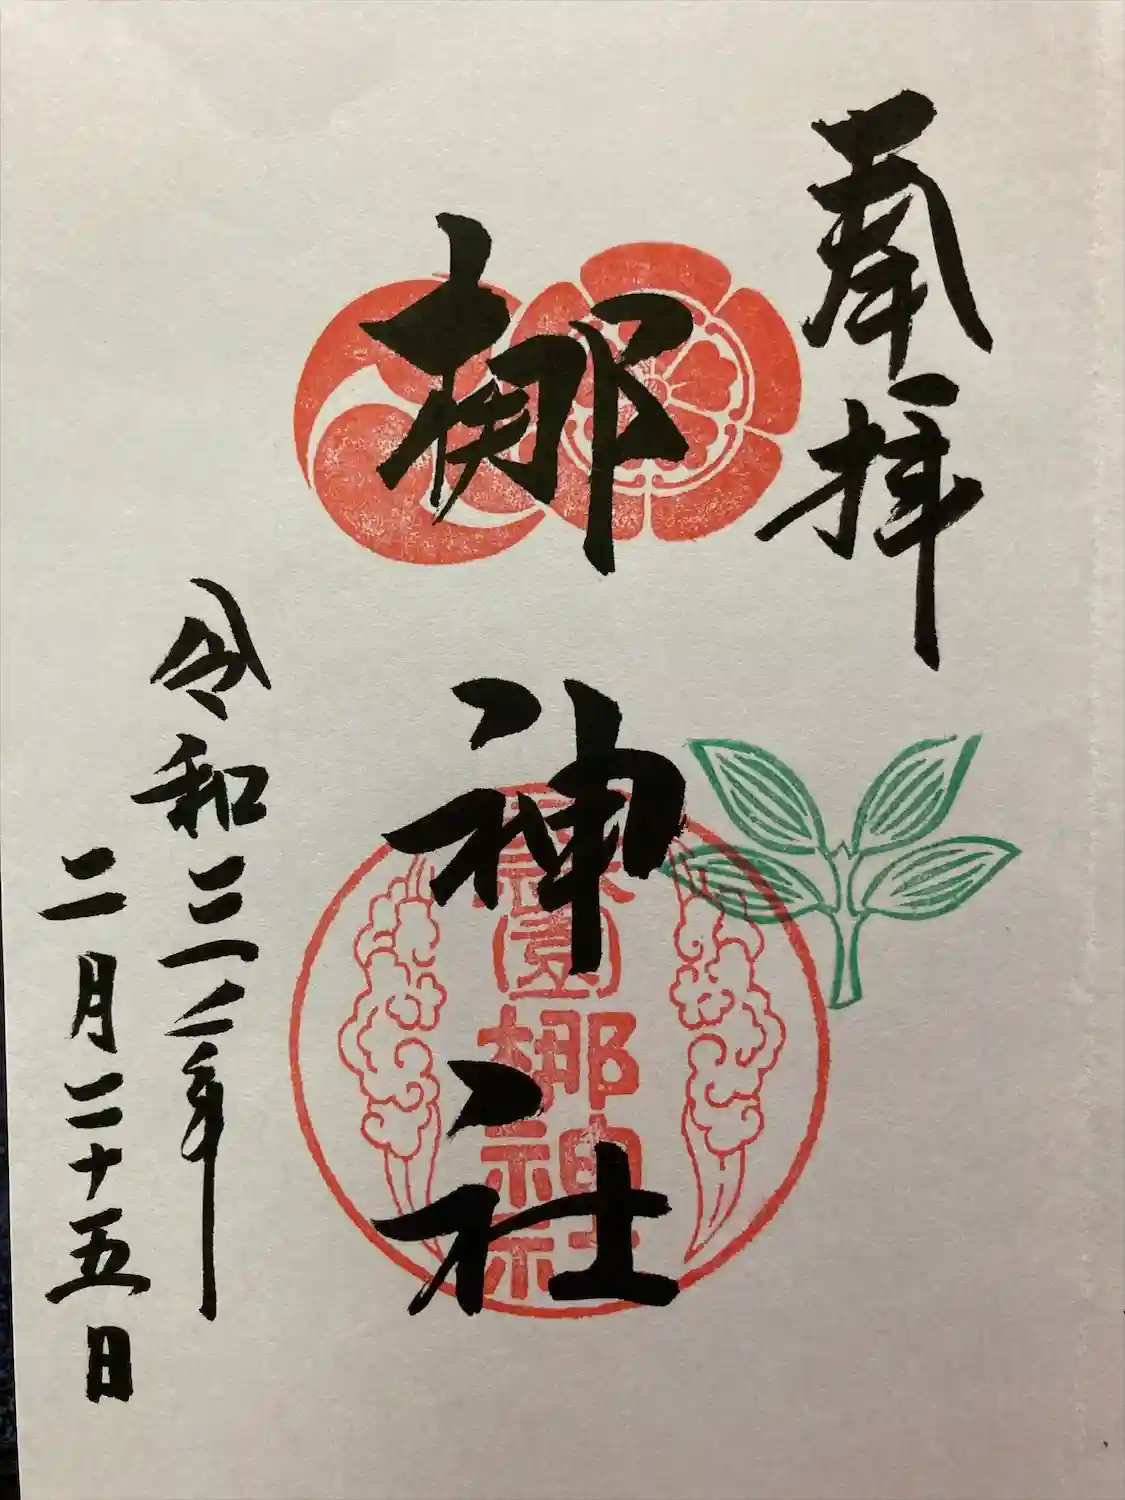 奉拝
梛神社
元祇園梛神社
令和三年
二月二十五日